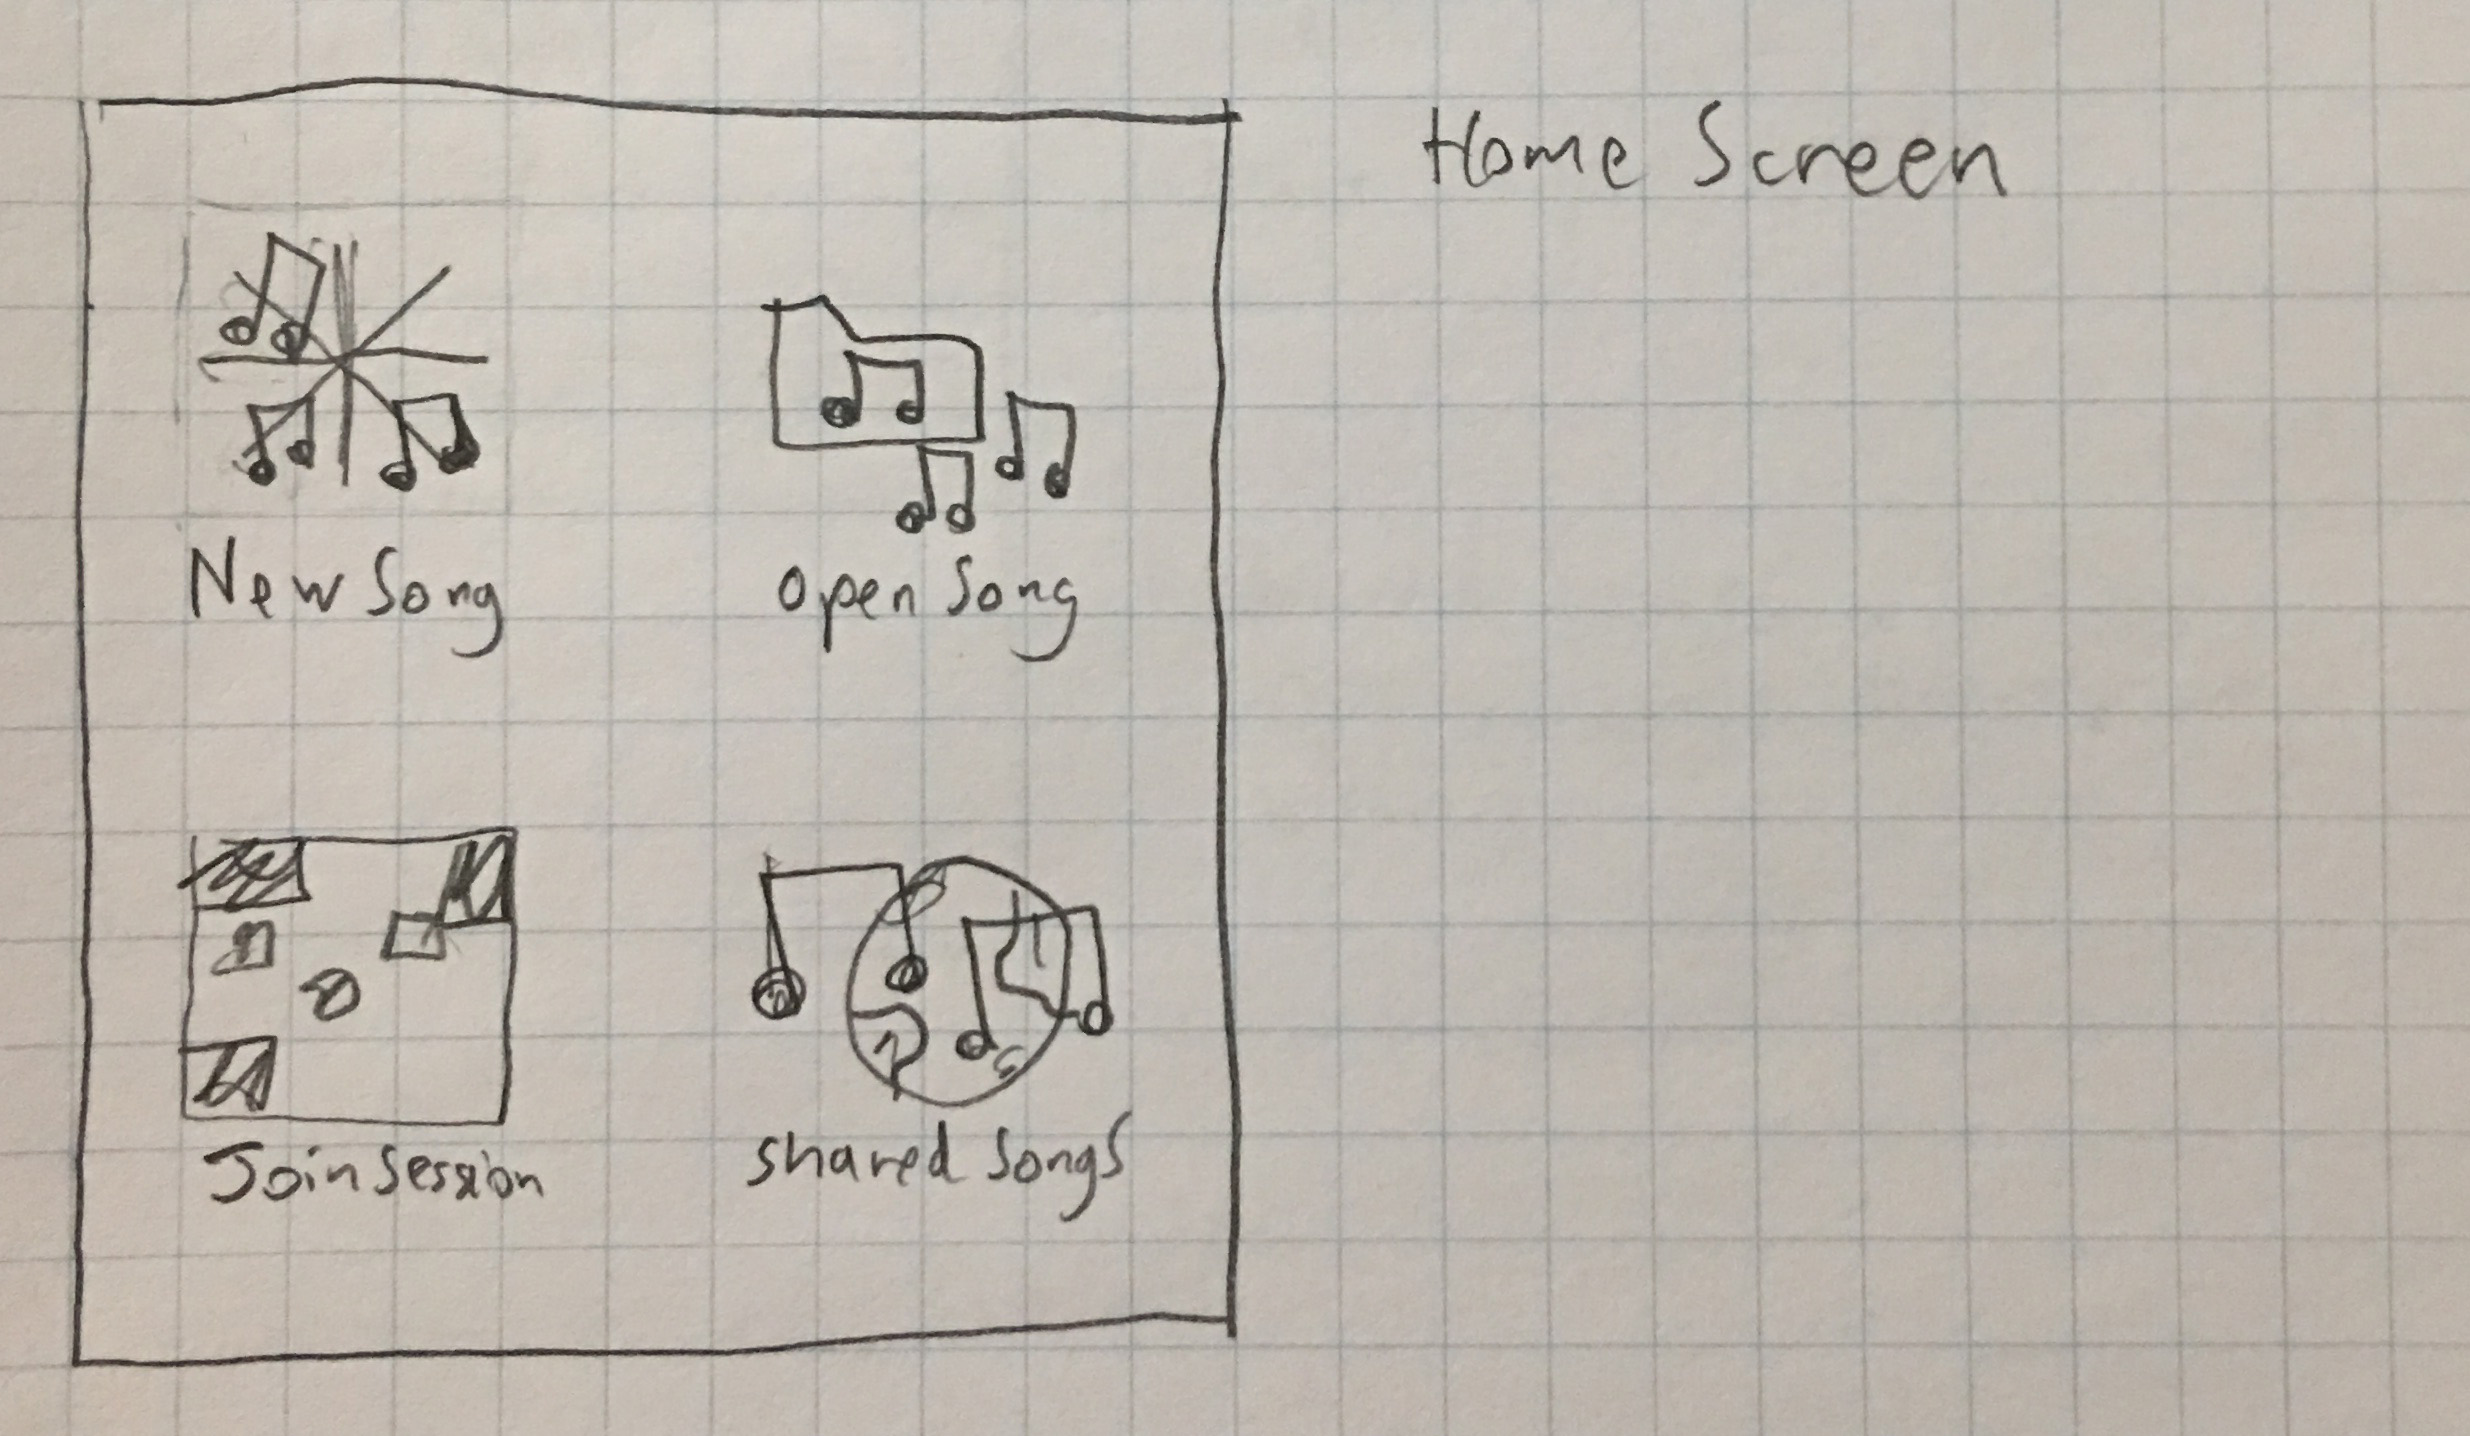 Home Screen
New Song
open Song
Join Session
shared Songs